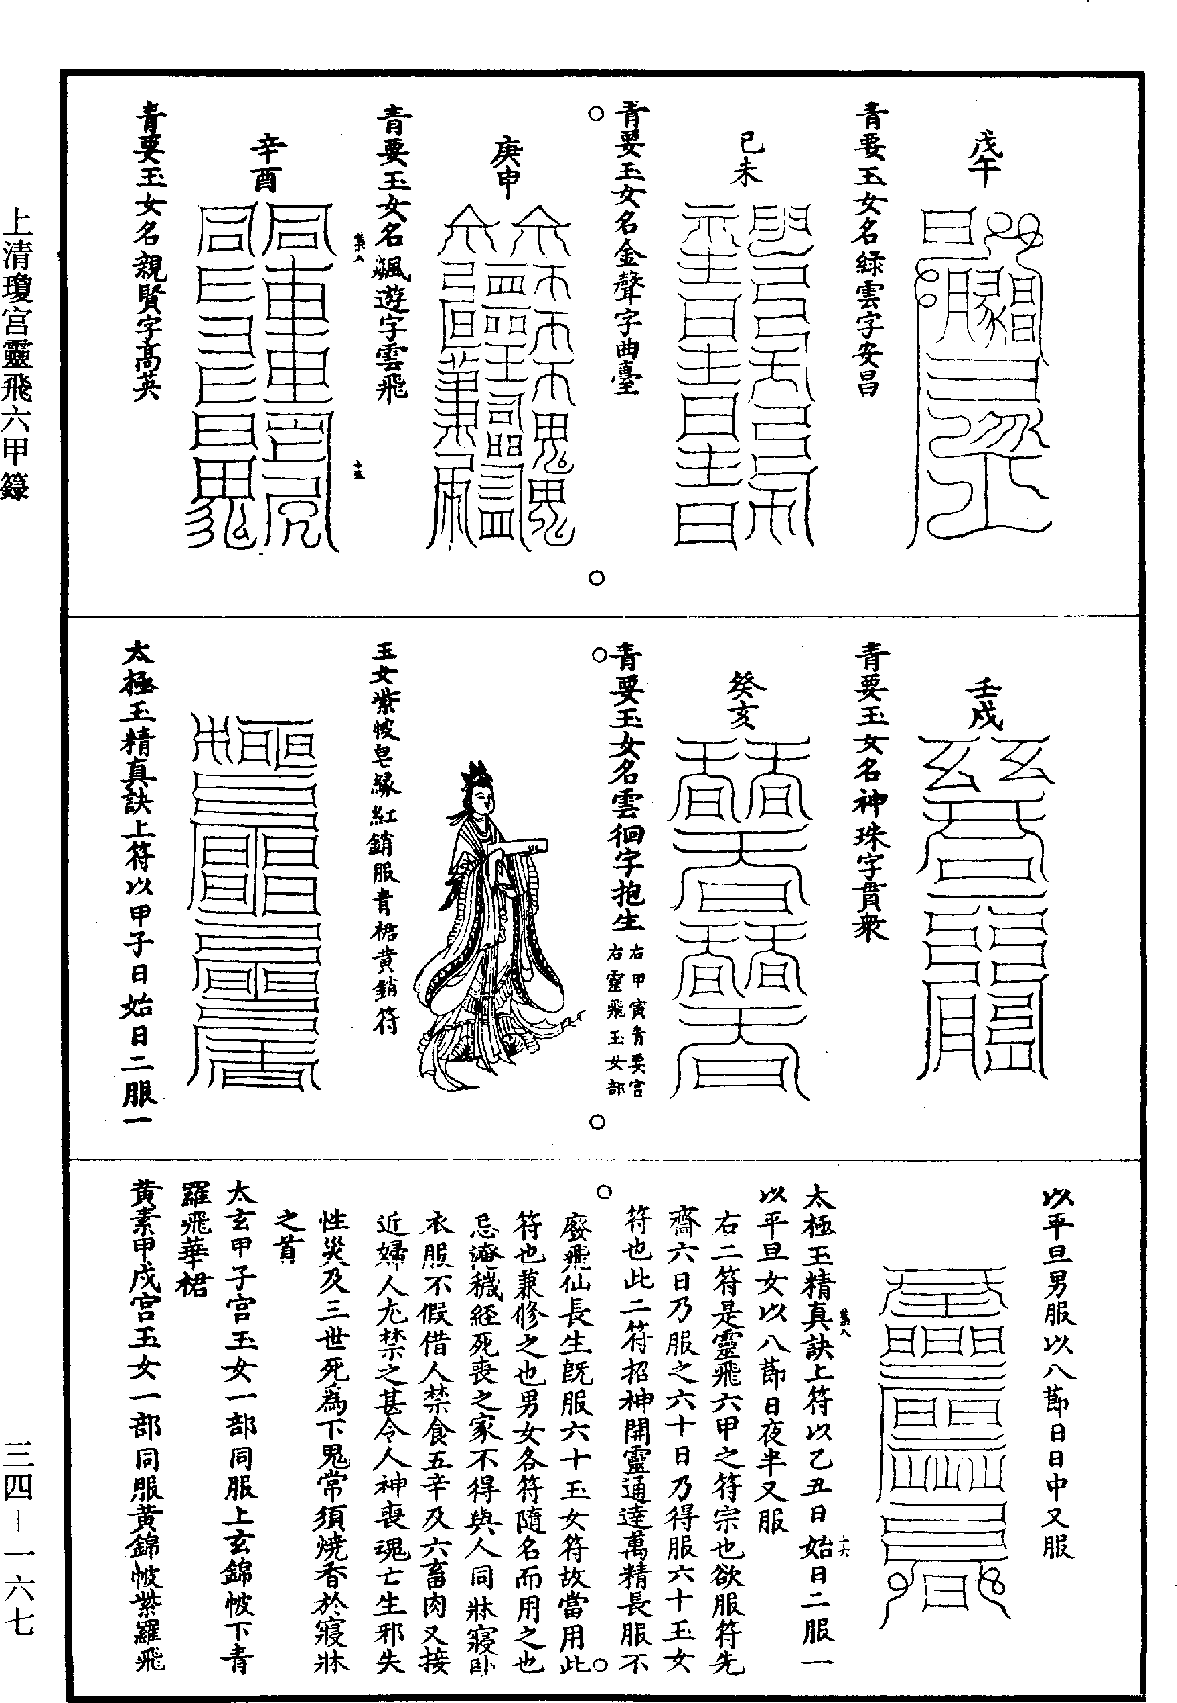 戊午
青要玉女名綠雲字安昌
己未
青要玉女名金聲字曲臺
庚申
青要玉女名飆遊字雲飛
辛酉
青要玉女名親賢字高英
壬戌
青要玉女名神珠字貫衆
癸亥
青要玉女名雲徊字抱生
右甲寅青要宮
右靈飛玉女部
玉女紫帔皂緣紅銷服青裙黄銷符
太極玉精真訣上符以甲子日始日二服一
以平旦男服以八節日日中又服
太極玉精真訣上符以乙丑日始日二服一
以平旦女以八節日夜半又服
右二符是靈飛六甲之符宗也欲服符先
齋六日乃服之六十日乃得服六十玉女
符也此二符招神開靈通達萬精長服不
廢飛仙長生旣服六十玉女符故當用此
符也兼修之也男女各符隨名而用之也
忌淹穢經死喪之家不得與人同牀寢卧
衣服不假借人禁食五辛及六畜肉又接
近婦人尤禁之甚令人神喪魂亡生邪失
性災及三世死爲下鬼常須燒香於寢牀
之首
太玄甲子宮玉女一部同服上玄錦帔下青
羅飛華裙
黄素甲戌宮玉女一部同服黄錦帔紫羅飛
上清瓊宮靈飛六甲籙
三四－一六七